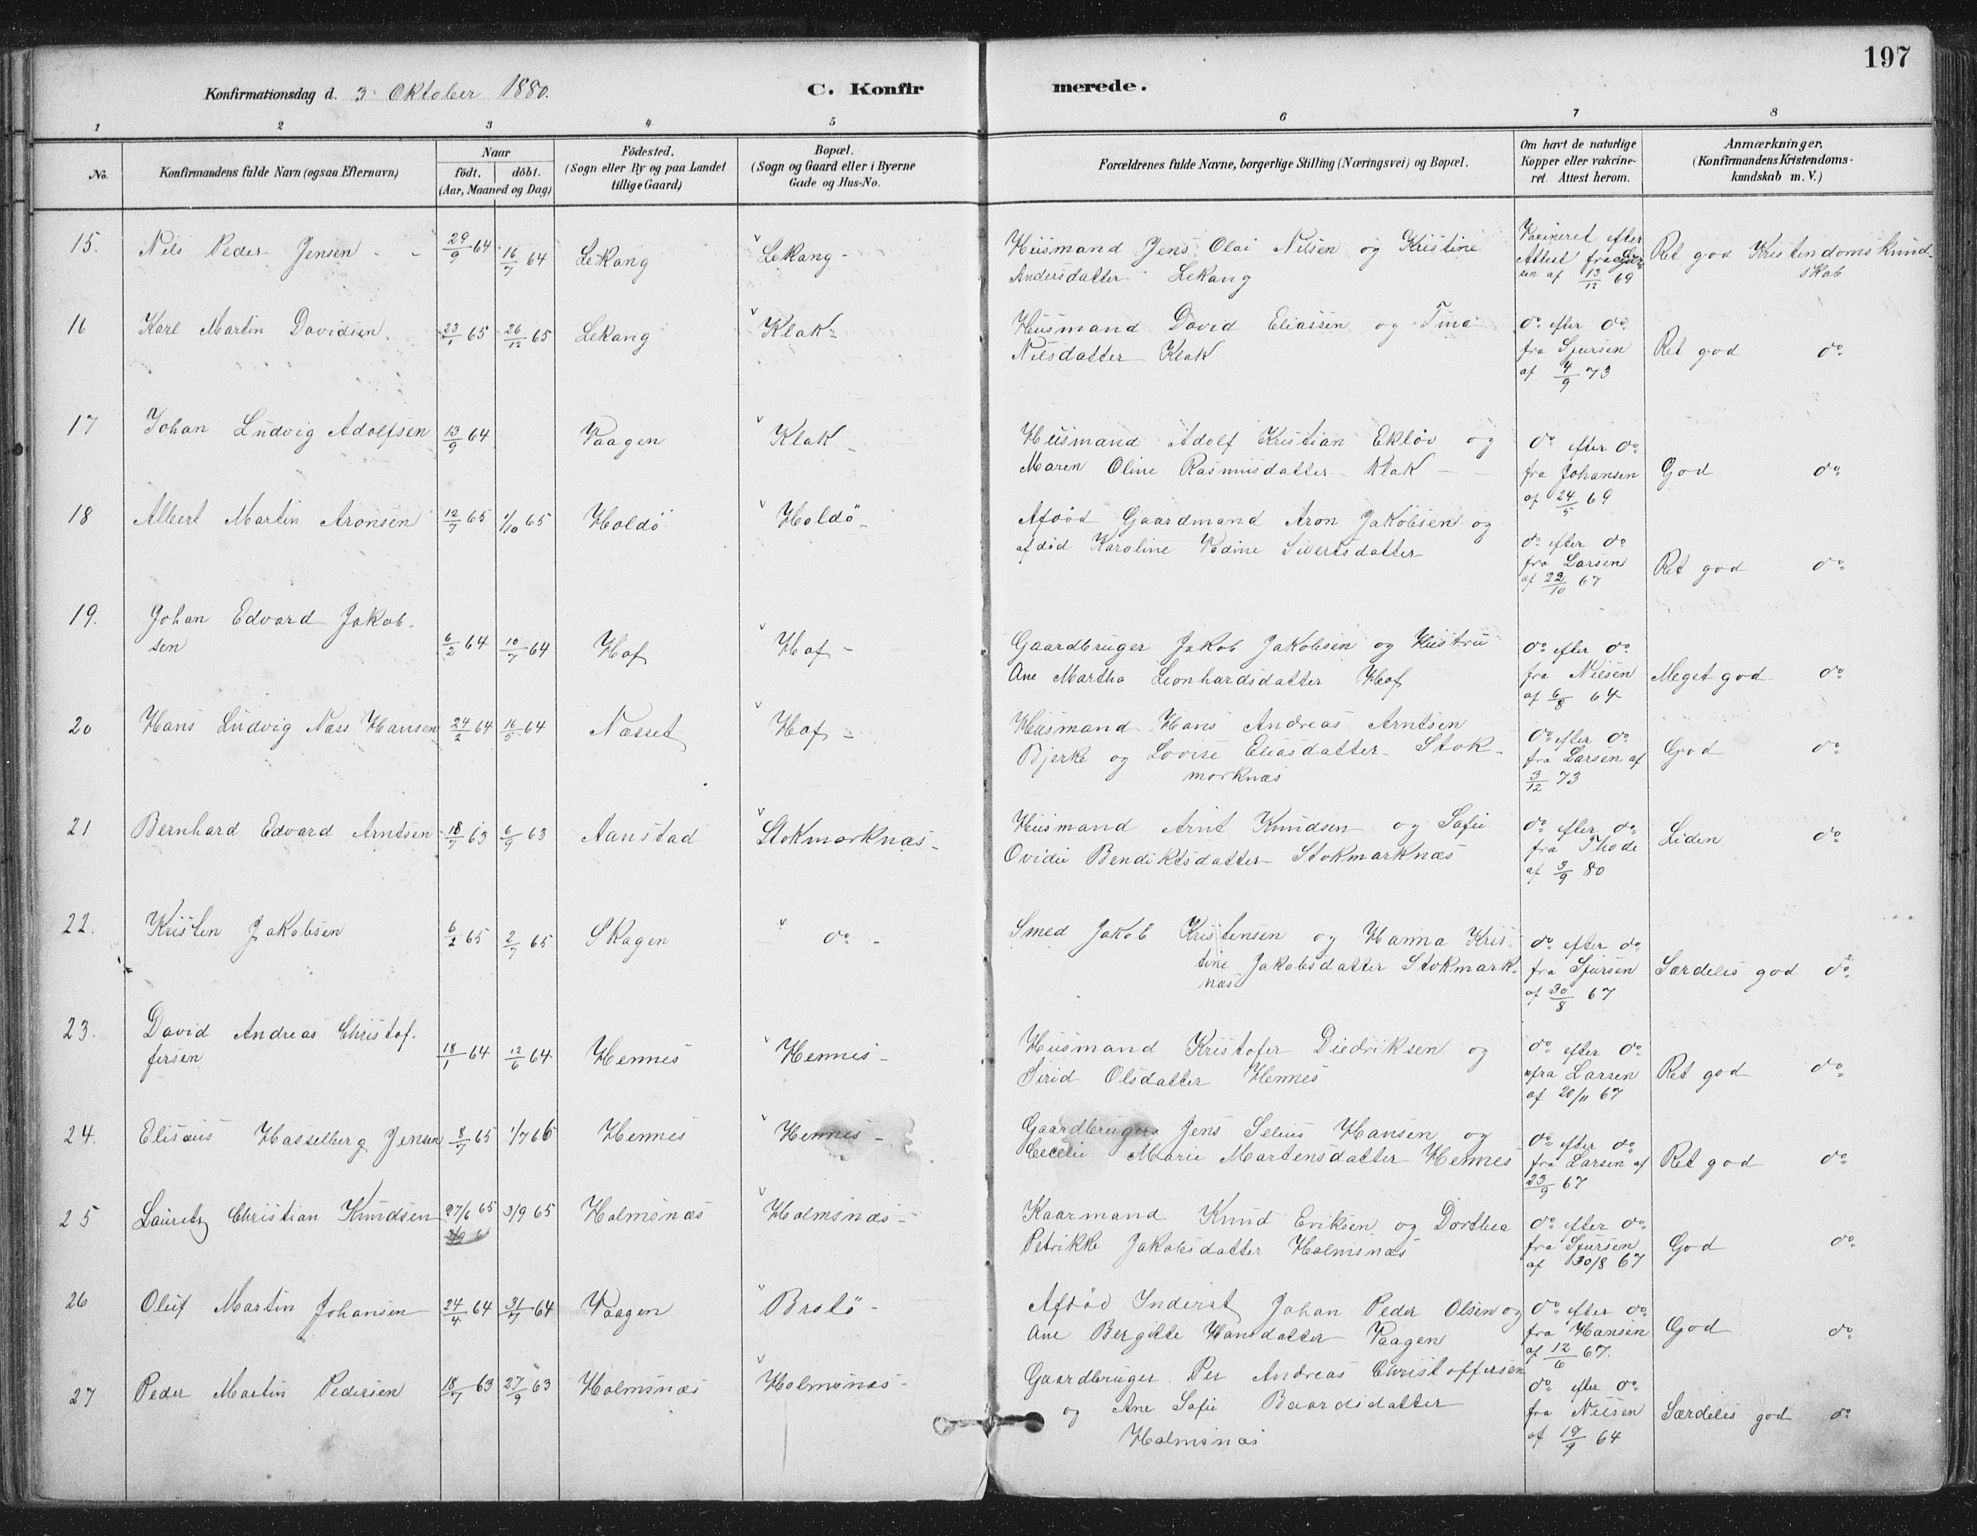 197
Konfirmationsdag d. 3. Oktober 1880.
C. Konfirmerede.
1 2 3 4 5 6 7 8
No.
Konfirmandens fulde Navn (ogsaa Efternavn)
Naar
födt. döbt.
(Aar, Maaned og Dag)
Födested.
(Sogn eller By og paa Landet
tillige Gaard)
Bopæl.
(Sogn og Gaard eller i Byerne
Gade og Hus-No.
Forældrenes fulde Navne, borgerlige Stilling (Næringsvei) og Bopæl.
Om havt de naturlige
Kopper eller vakcine-
ret. Attest herom.
Anmærkninger.
(Konfirmandens Kristendoms-
kundskab m. V.)
15. Nils Peder Jensen - - 29/9 64 16/7 64 Lekang Lekang -
Husmand Jens Olai Nilsen og Kristine
Andersdatter Lekang
Vaxineret efter
Attest fra
af 13/12 69
Ret god Kristendomskund-
skab
16 Karl Martin Davidsen 23/1 65 26/12 65 Lekang Klak -
Husmand David Eliassen og Tina
Nilsdatter Klak
do efter do
fra Sjursen
af 4/9 73
Ret god do
17 Johan Ludvig Adolfsen 13/9 64 Vaagen Klak -
Husmand Adolf Kristian Ekløv og
Maren Oline Rasmusdatter - Klak -
do efter do
fra Johansen
af 24/5 69
God do
18 Albert Martin Aronsen 12/7 65 1/10 65 Holdö Holdö -
Afdöd Gaardmand Aron Jakobsen og
afdöd Karoline Vodine Sivertsdatter
do efter do
fra Larsen
af 22/10 67
Ret god do
19. Johan Edvard Jakob-
sen 6/2 64 10/7 64 Hof Hof -
Gaardbruger Jakob Jakobsen og Hustru
Ane Martha Leonhardsdatter Hof
do efter do
fra Nilsen
af 6/8 64
Meget god do
20 Hans Ludvig Næss Hansen 24/2 64 16/5 64 Næsset Hof -
Husmand Hans Andreas Arntsen
Bjerke og Lovise Eliasdatter Stok-
marknæs
do efter do
fra Larsen af
3/12 73
God do
21 Bernhard Edvard Arntsen 18/7 63 6/9 63 Aanstad Stokmarknæs -
Husmand Arnt Knudsen og Sofie
Ovidie Bendiktsdatter Stokmarknæs
do efter do
fra Thode
af 3/9 80
Liden do
22. Kristen Jakobsen 6/2 65 2/7 65 Skagen do -
Smed Jakob Kristensen og Hanna Kris-
tine Jakobsdatter Stokmark-
næs
do efter do
fra Sjursen
af 30/8 67
Særdeles god do
23. David Andreas Christof-
fersen 18/1 64 12/6 64 Hennes Hennes -
Husmand Kristofer Diedriksen og
Sirid Olsdatter Hennes
do efter do
fra Larsen
af 20/11 67
Ret god do
24. Elisæus Hasselberg Jensen 8/7 65 1/7 66 Hennes Hennes -
Gaardbruger Jens Selius Hansen og
Cecelie Marie Martensdatter Hennes
do efter do
fra Larsen af
23/9 67
Ret god do
25 Lauritz Christian Knudsen 27/6 65 3/9 65 Holmsnæs Holmsnæs -
Kaarmand Knud Eriksen og Dorthea
Petrikke Jakobsdatter Holmsnæs
do efter do
fra Sjursen
af 30/8 67
God do
26 Oluf Martin Johansen 24/4 64 31/7 64 Vaagen Brotö -
Afdöd Inderst Johan Peder Olsen og
Ane Bergitte Hansdatter Vaagen
do efter do
fra Hansen
af 12/6 67.
God do
27 Peder Martin Pedersen 18/7 63 27/9 63 Holmsnæs Holmsnæs -
Gaardbruger Per Andreas Christoffersen
og Ane Sofie Baardsdatter
Holmsnæs
do efter do
fra Nilsen
af 19/9 64
Særdeles god do